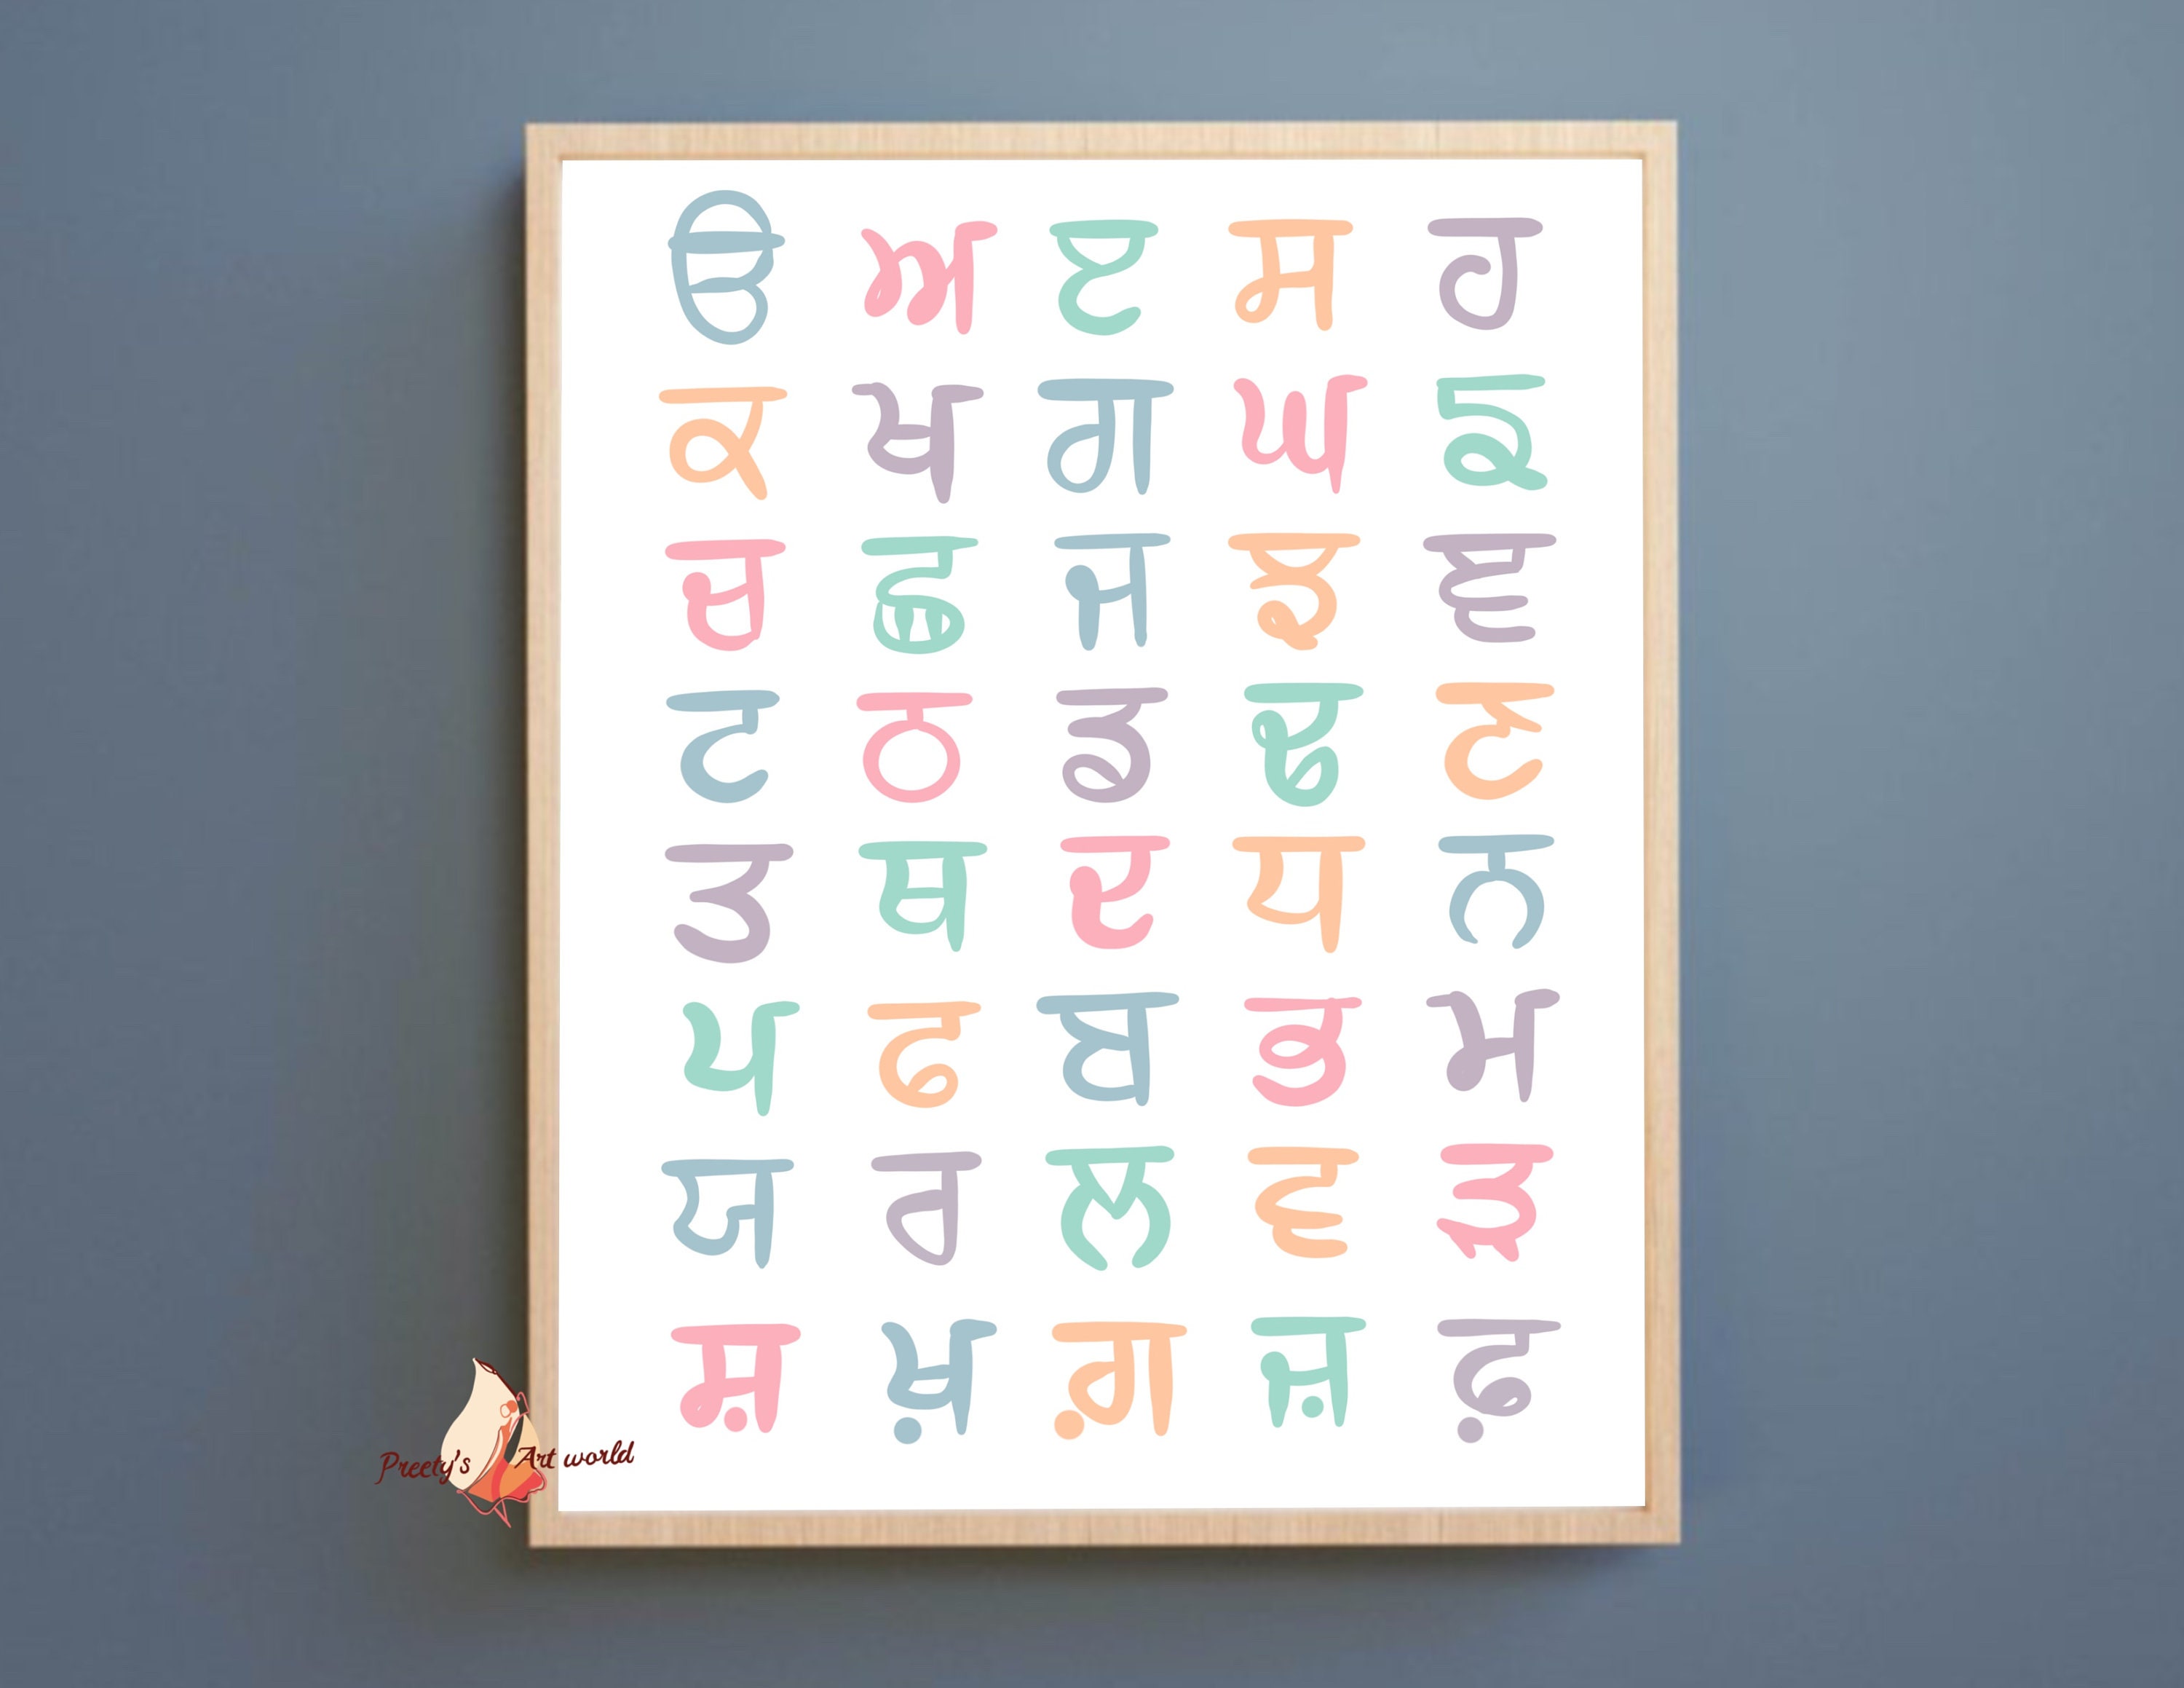 ੳ ਅ ੲ ਸ ਹ
ਕ ਖ ਗ ਘ ਙ
ਚ ਛ ਜ ਝ ਞ
ਟ ਠ ਡ ਢ ਣ
ਤ ਥ ਦ ਧ ਨ
ਪ ਫ ਬ ਭ ਮ
ਯ ਰ ਲ ਵ ੜ
ਸ਼ ਖ਼ ਗ਼ ਜ਼ ਫ਼
Preety's Art world